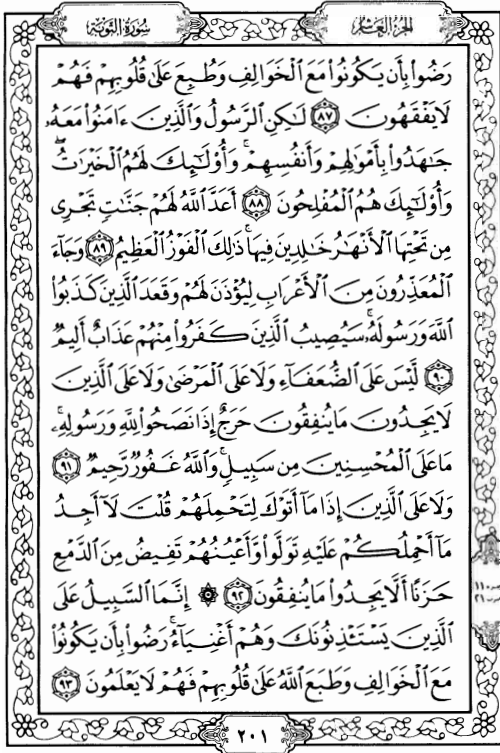 الجزء العاشر
سورة التوبة
رَضُوا۟ بِأَن يَكُونُوا۟ مَعَ ٱلْخَوَالِفِ وَطُبِعَ عَلَىٰ قُلُوبِهِمْ فَهُمْ
لَا يَفْقَهُونَ ۝٨٧ لَٰكِنِ ٱلرَّسُولُ وَٱلَّذِينَ ءَامَنُوا۟ مَعَهُۥ
جَٰهَدُوا۟ بِأَمْوَٰلِهِمْ وَأَنفُسِهِمْ ۚ وَأُو۟لَٰٓئِكَ لَهُمُ ٱلْخَيْرَٰتُ ۖ
وَأُو۟لَٰٓئِكَ هُمُ ٱلْمُفْلِحُونَ ۝٨٨ أَعَدَّ ٱللَّهُ لَهُمْ جَنَّٰتٍ تَجْرِى
مِن تَحْتِهَا ٱلْأَنْهَٰرُ خَٰلِدِينَ فِيهَا ۚ ذَٰلِكَ ٱلْفَوْزُ ٱلْعَظِيمُ ۝٨٩ وَجَآءَ
ٱلْمُعَذِّرُونَ مِنَ ٱلْأَعْرَابِ لِيُؤْذَنَ لَهُمْ وَقَعَدَ ٱلَّذِينَ كَذَبُوا۟
ٱللَّهَ وَرَسُولَهُۥ ۚ سَيُصِيبُ ٱلَّذِينَ كَفَرُوا۟ مِنْهُمْ عَذَابٌ أَلِيمٌ
۝٩٠ لَّيْسَ عَلَى ٱلضُّعَفَآءِ وَلَا عَلَى ٱلْمَرْضَىٰ وَلَا عَلَى ٱلَّذِينَ
لَا يَجِدُونَ مَا يُنفِقُونَ حَرَجٌ إِذَا نَصَحُوا۟ لِلَّهِ وَرَسُولِهِۦ ۚ
مَا عَلَى ٱلْمُحْسِنِينَ مِن سَبِيلٍ ۚ وَٱللَّهُ غَفُورٌ رَّحِيمٌ ۝٩١
وَلَا عَلَى ٱلَّذِينَ إِذَا مَآ أَتَوْكَ لِتَحْمِلَهُمْ قُلْتَ لَآ أَجِدُ
مَآ أَحْمِلُكُمْ عَلَيْهِ تَوَلَّوا۟ وَّأَعْيُنُهُمْ تَفِيضُ مِنَ ٱلدَّمْعِ
حَزَنًا أَلَّا يَجِدُوا۟ مَا يُنفِقُونَ ۝٩٢ ۞ إِنَّمَا ٱلسَّبِيلُ عَلَى
ٱلَّذِينَ يَسْتَـْٔذِنُونَكَ وَهُمْ أَغْنِيَآءُ ۚ رَضُوا۟ بِأَن يَكُونُوا۟
مَعَ ٱلْخَوَالِفِ وَطَبَعَ ٱللَّهُ عَلَىٰ قُلُوبِهِمْ فَهُمْ لَا يَعْلَمُونَ ۝٩٣
٢٠١